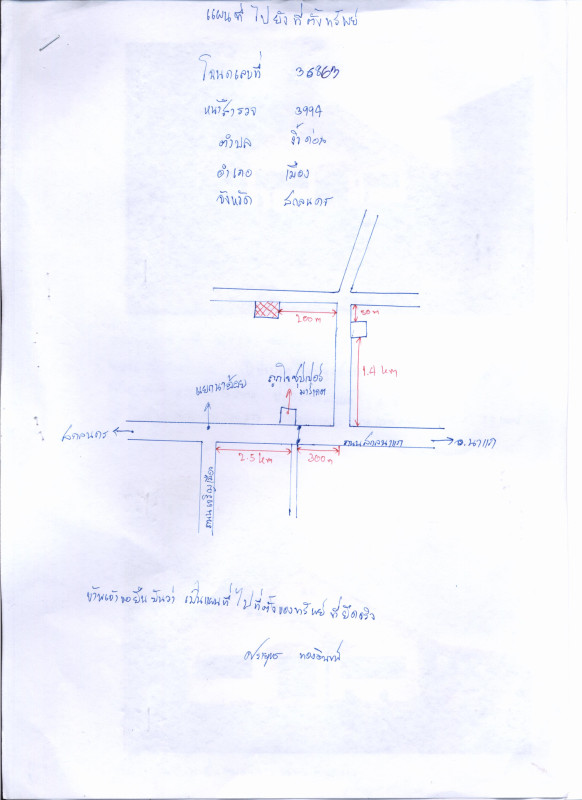 แผนที่ ไปยังที่ตั้งทรัพย์
โฉนดเลขที่
หน้าสำรวจ 3994
ตำบล งิ้วด่อน
อำเภอ เมือง
จังหวัด สกลนคร
200 m
50 m
1.4 km
แยกนาอ้อย
ถูกใจซุปเปอร์
มาร์เกต
สกลนคร
ถนนสกลนาแก
อ.นาแก
2.5 km
300 m
ข้าพเจ้าขอยืนยันว่า เป็นแผนที่ ไปที่ตั้งของทรัพย์ ที่ยึดจริง